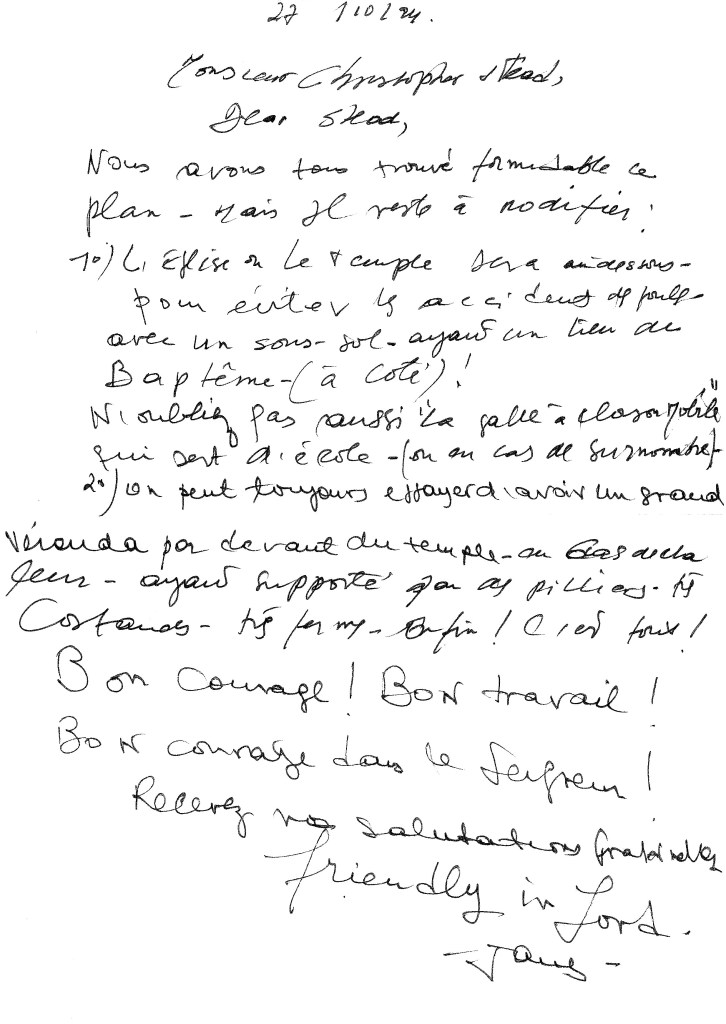 27 /10/24.
Monsieur Christopher Stead,
Dear Stead,
Nous avons tous trouvé formidable ce
plan - Mais Il reste à modifier:
1°) L'Eglise ou Le temple sera au dessous -
pour éviter les accidents de foule -
avec un sous-sol - ayant un lieu de
Baptême - (à Coté)!
N'oubliez pas aussi "La salle à cloison Mobile"
qui sert d'école - (ou en cas de surnombre) -
2°) On peut toujours essayer d'avoir un grand
Véranda par devant du temple - au
ayant supporté par des pilliers - très
- très ferme - Enfin! C'est tout!
Bon Courage! BON travail!
BON courage dans le Seigneur!
Recevez nos salutations fraternelles
Friendly in Lord.